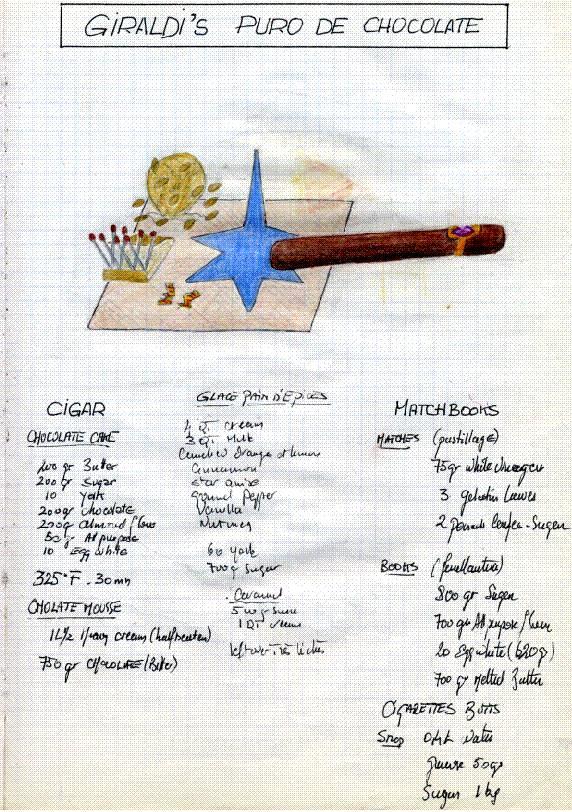 GIRALDI'S PURO DE CHOCOLATE
CIGAR
CHOCOLATE CAKE
200 gr Butter
200 gr Sugar
10 york
200 gr chocolate
200 gr almond flour
50 gr All purpose
10 Egg white
325°F . 30 mn
CHOLATE MOUSSE
1L1/2 cream (half beaten)
750 gr CHOCOLATE (Bitter)
GLACE PAIN D'EPICES
4 QT. cream
3 QT. Milk
Candied Orange
Cinnamon
star anise
Ground Pepper
Vanilla
Nutmeg
60 york
700 gr Sugar
. Caramel
500 gr Sucre
1 QT creme
MATCHBOOKS
MATCHES (pastillage)
75 gr white vinegar
3 gelatin leaves
2 pounds Confec. Sugar
BOOKS (feuillantine)
800 gr Sugar
700 gr All purpose flour
20 Egg white (620g)
700 gr Melted Butter
CIGARETTES BUTTS
water
glucose 50 gr
Sugar 1 kg